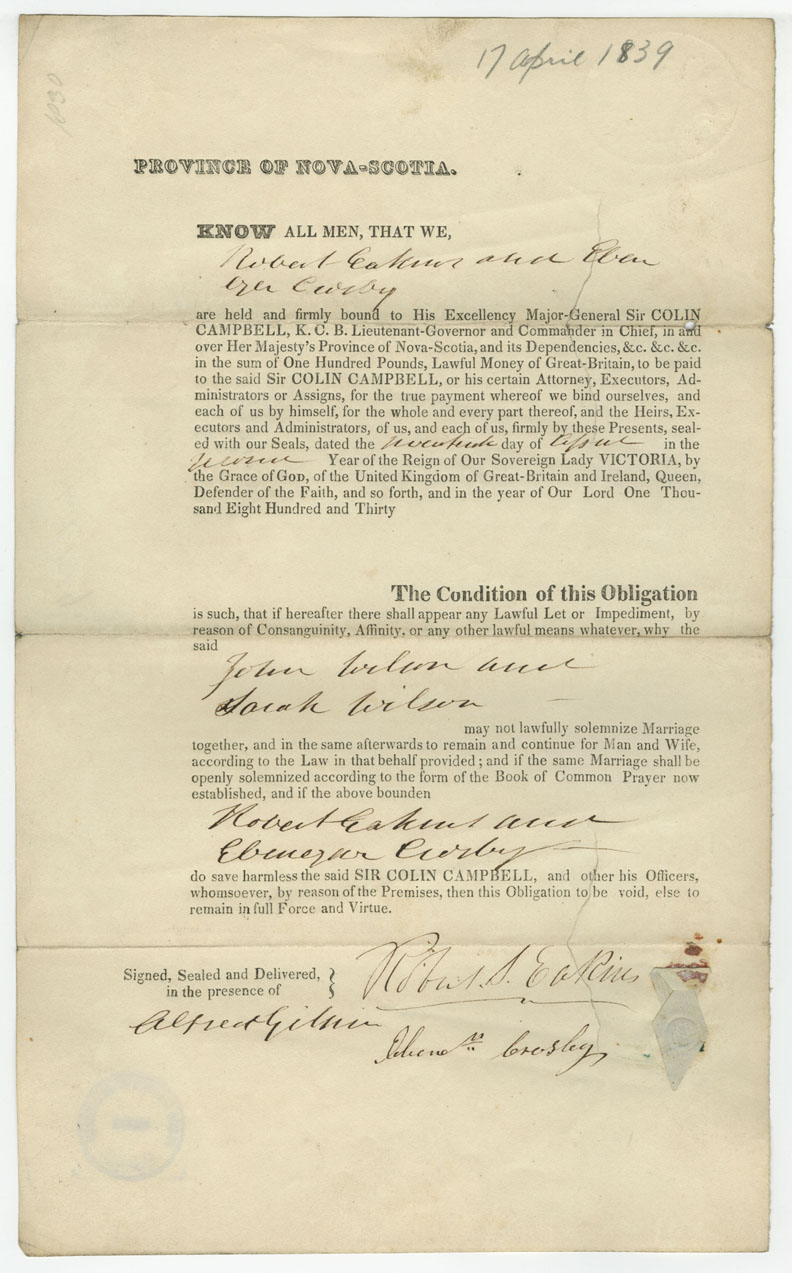 17 April 1839
PROVINCE OF NOVA-SCOTIA.
KNOW ALL MEN, THAT WE,
Robert Eakins and Eben
ezer Crosby
are held and firmly bound to His Excellency Major-General Sir COLIN
CAMPBELL, K. C. B. Lieutenant-Governor and Commander in Chief, in and
over Her Majesty's Province of Nova-Scotia, and its Dependencies, &c. &c. &c.
in the sum of One Hundred Pounds, Lawful Money of Great-Britain, to be paid
to the said Sir COLIN CAMPBELL, or his certain Attorney, Executors, Ad-
ministrators or Assigns, for the true payment whereof we bind ourselves, and
each of us by himself, for the whole and every part thereof, and the Heirs, Ex-
ecutors and Administrators, of us, and each of us, firmly by these Presents, seal-
ed with our Seals, dated the seventeenth day of April in the
second Year of the Reign of Our Sovereign Lady VICTORIA, by
the Grace of GOD, of the United Kingdom of Great-Britain and Ireland, Queen,
Defender of the Faith, and so forth, and in the year of Our Lord One Thou-
sand Eight Hundred and Thirty
The Condition of this Obligation
is such, that if hereafter there shall appear any Lawful Let or Impediment, by
reason of Consanguinity, Affinity, or any other lawful means whatever, why the
said
John Wilson and
Sarah Wilson
may not lawfully solemnize Marriage
together, and in the same afterwards to remain and continue for Man and Wife,
according to the Law in that behalf provided; and if the same Marriage shall be
openly solemnized according to the form of the Book of Common Prayer now
established, and if the above bounden
Robert Eakins and
Ebenezer Crosby
do save harmless the said SIR COLIN CAMPBELL, and other his Officers,
whomsoever, by reason of the Premises, then this Obligation to be void, else to
remain in full Force and Virtue.
Signed, Sealed and Delivered,
in the presence of
Robert S. Eakins
Alfred Gilpin
Ebenʳ Crosby